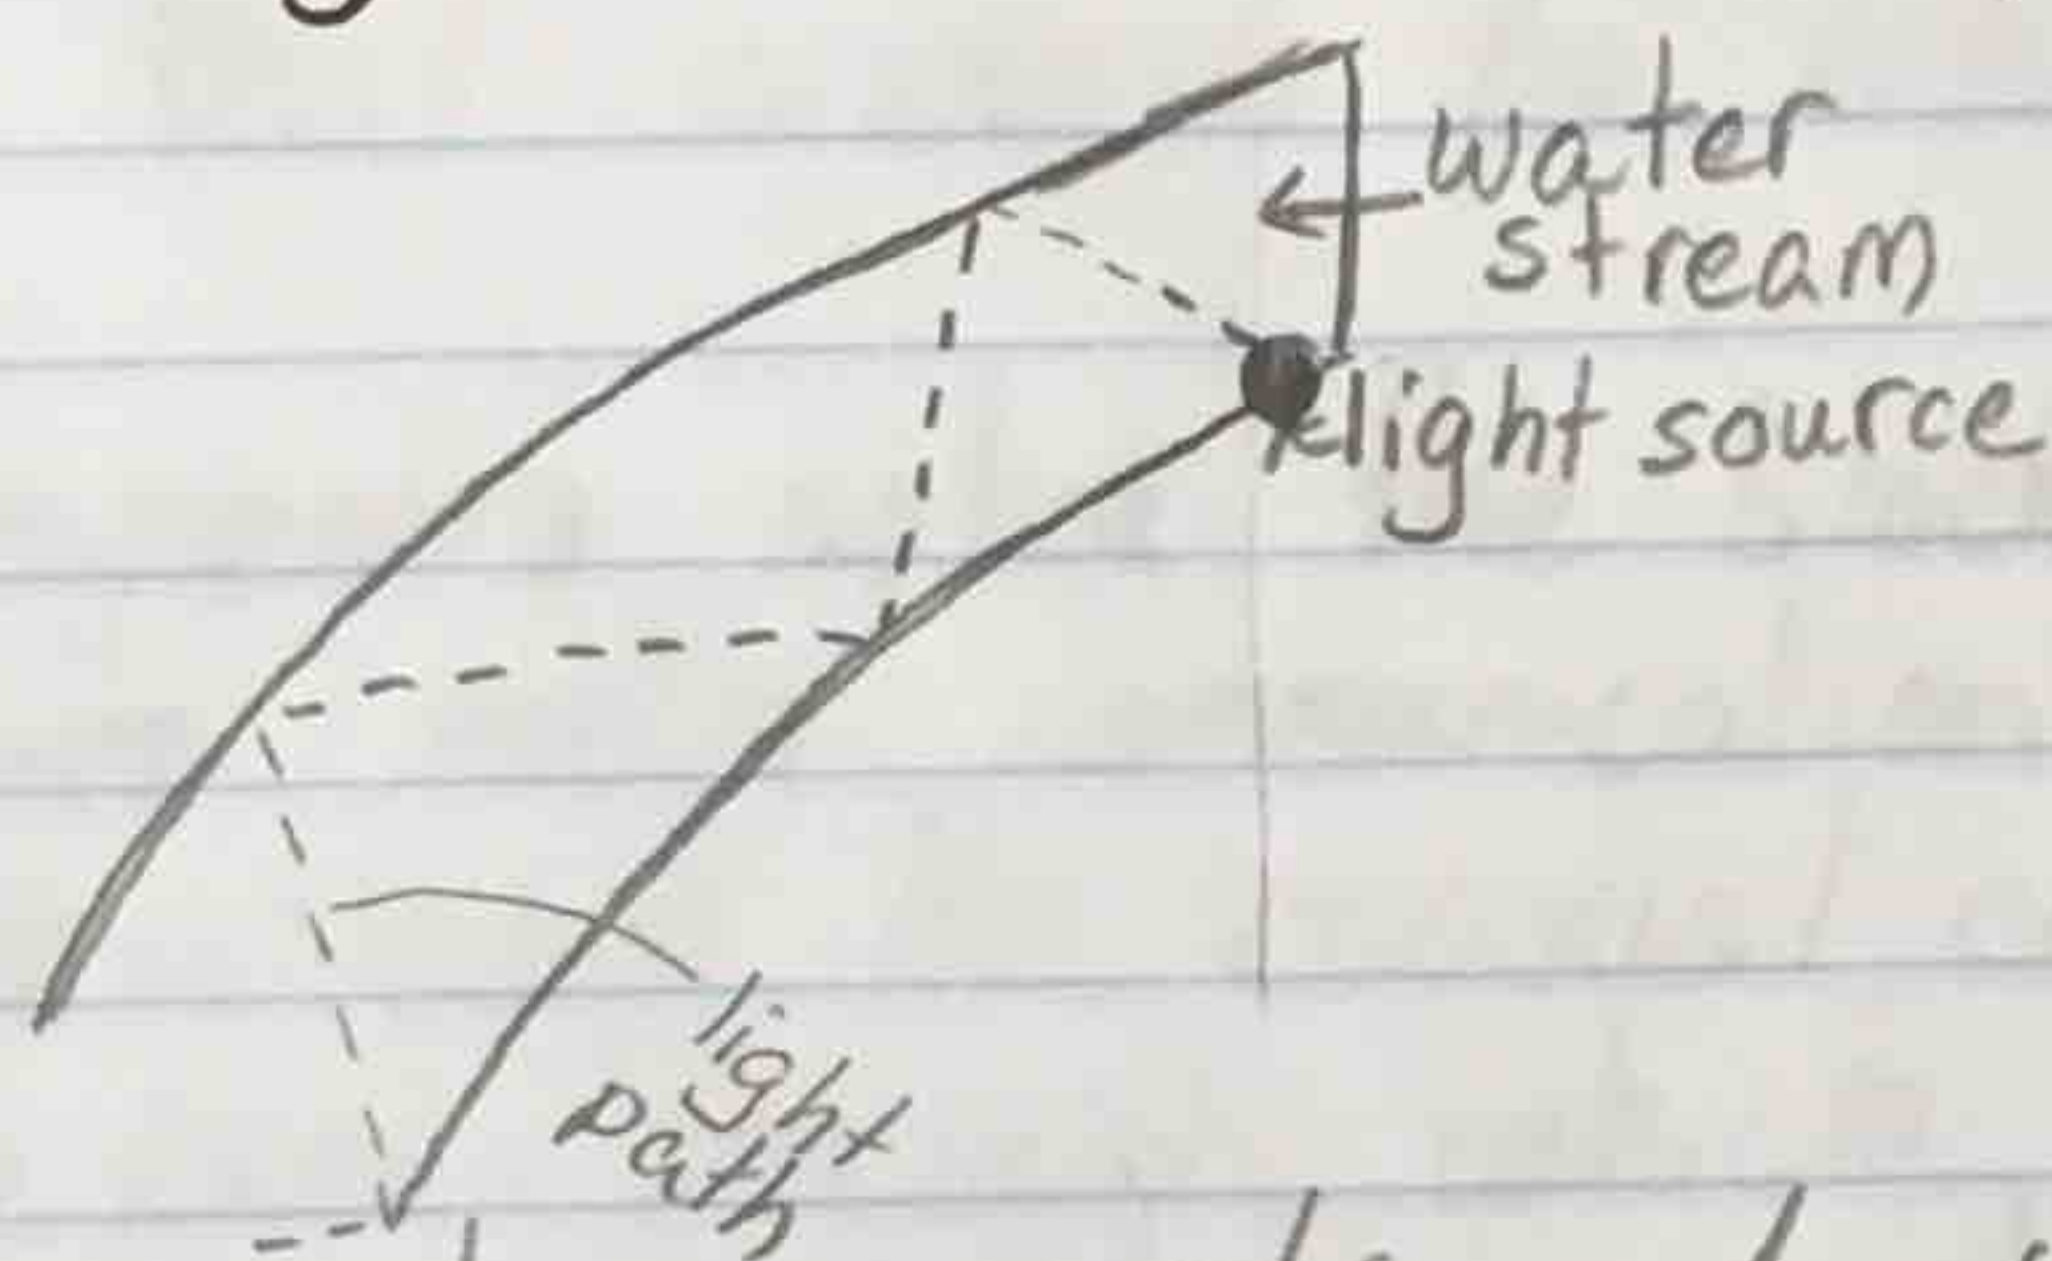 water
stream
light source
light
path